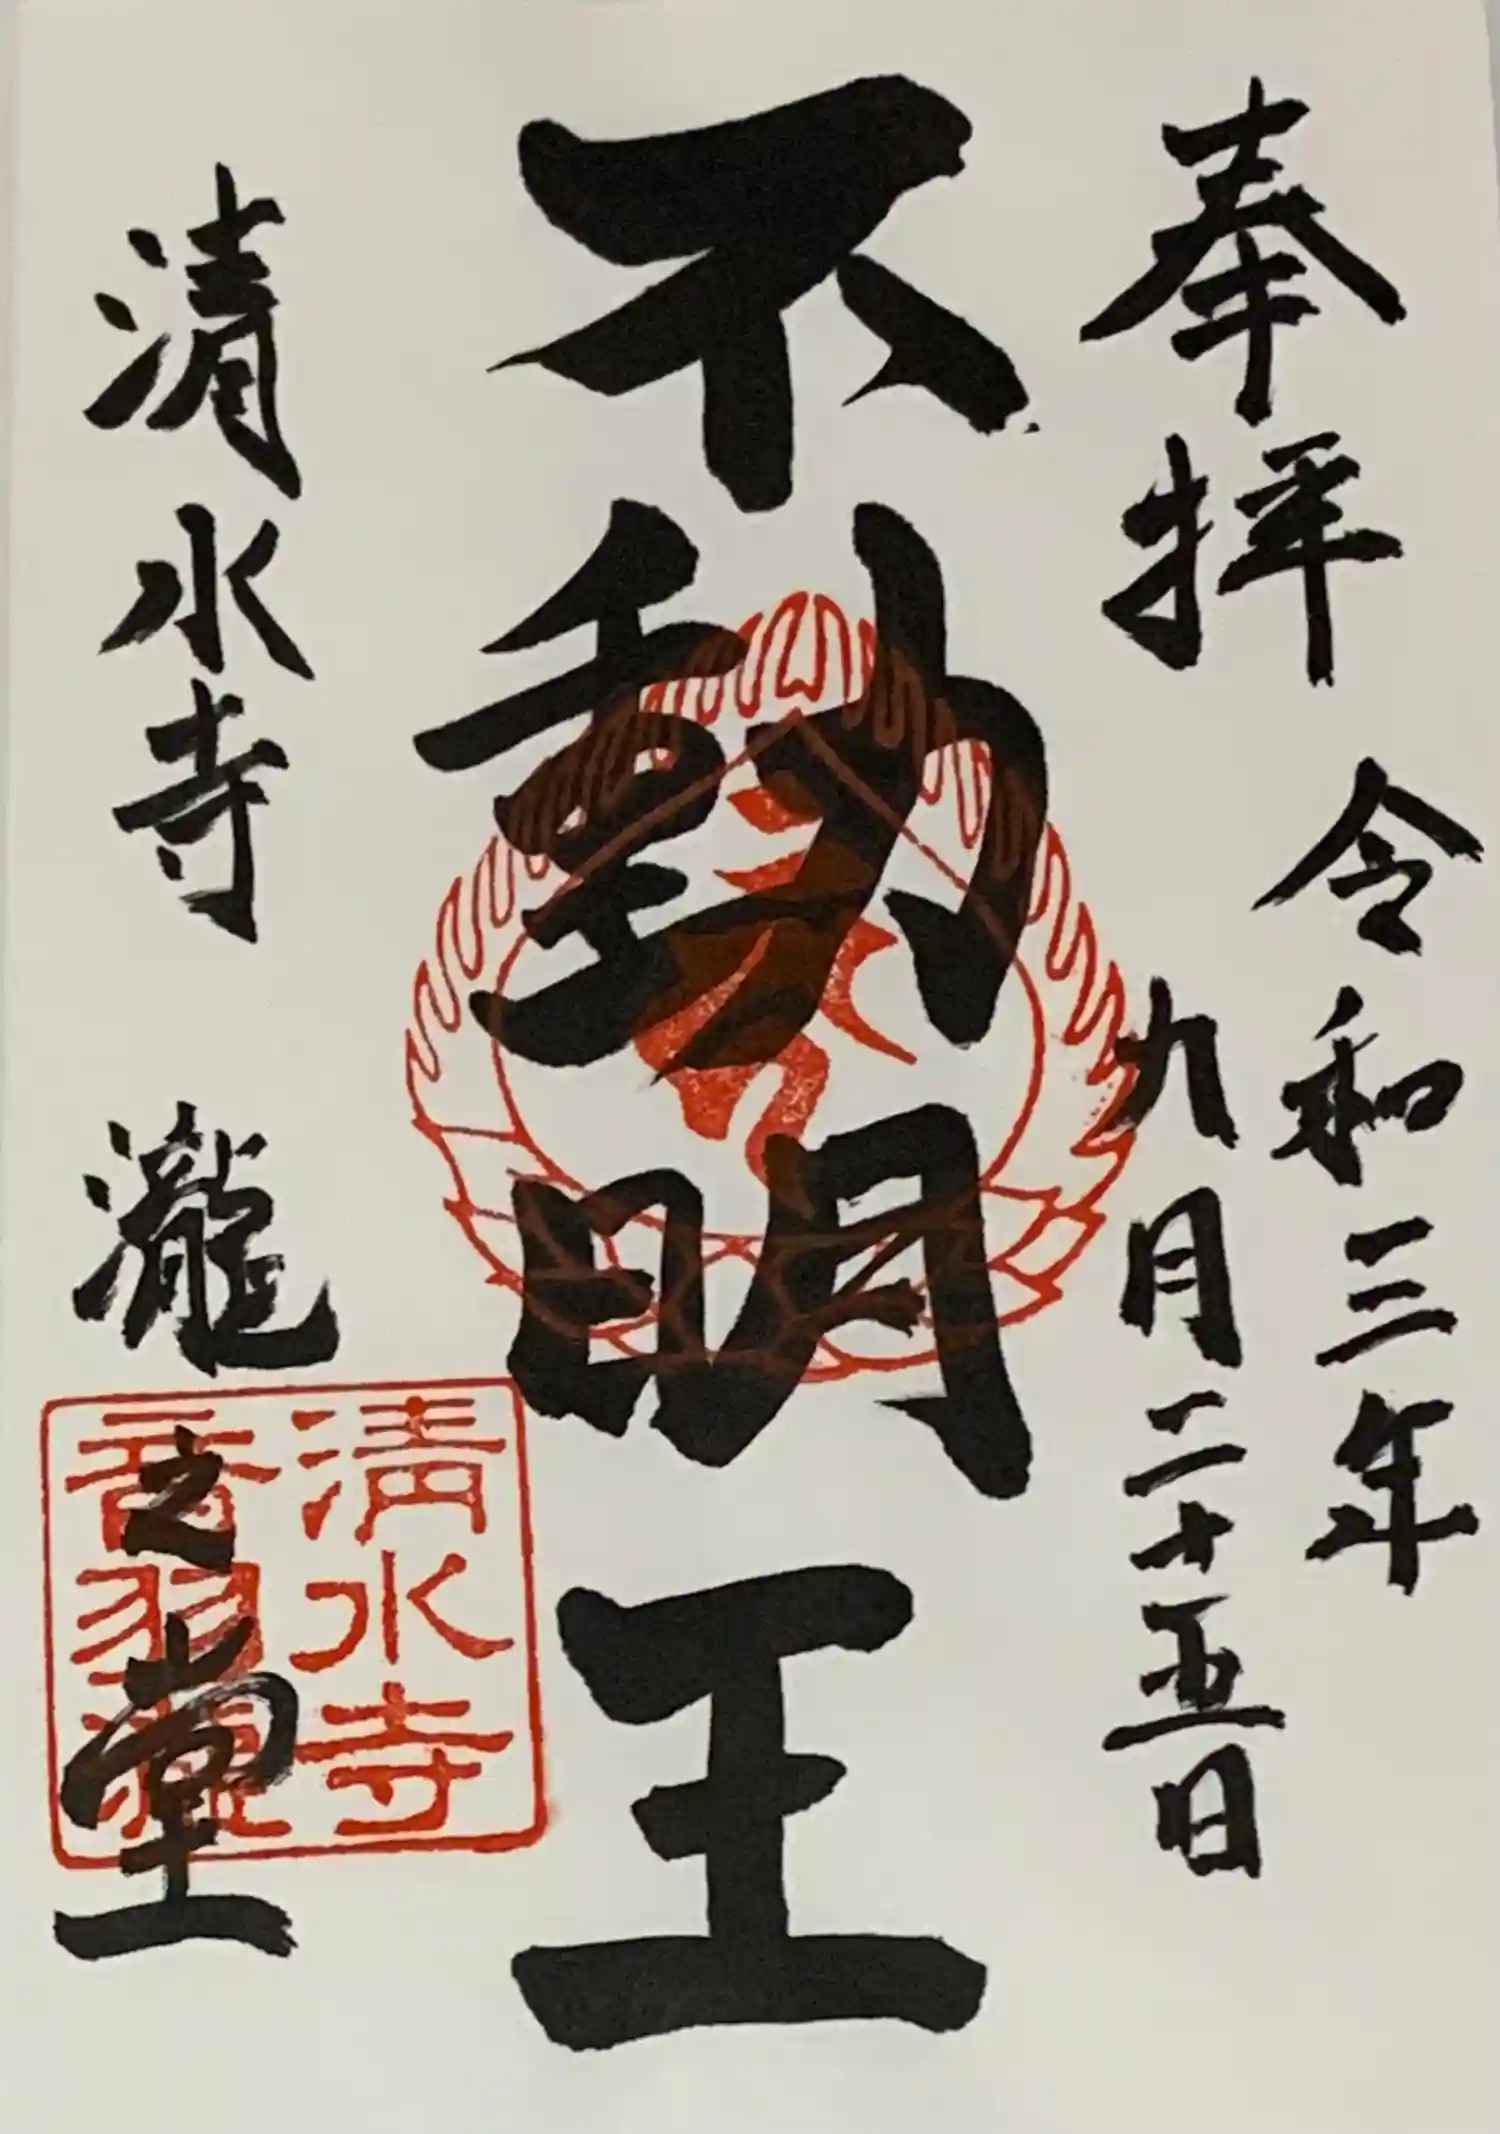 奉拝
令和三年
九月二十五日
不動明王
清水寺 瀧之堂
清水寺
音羽瀧